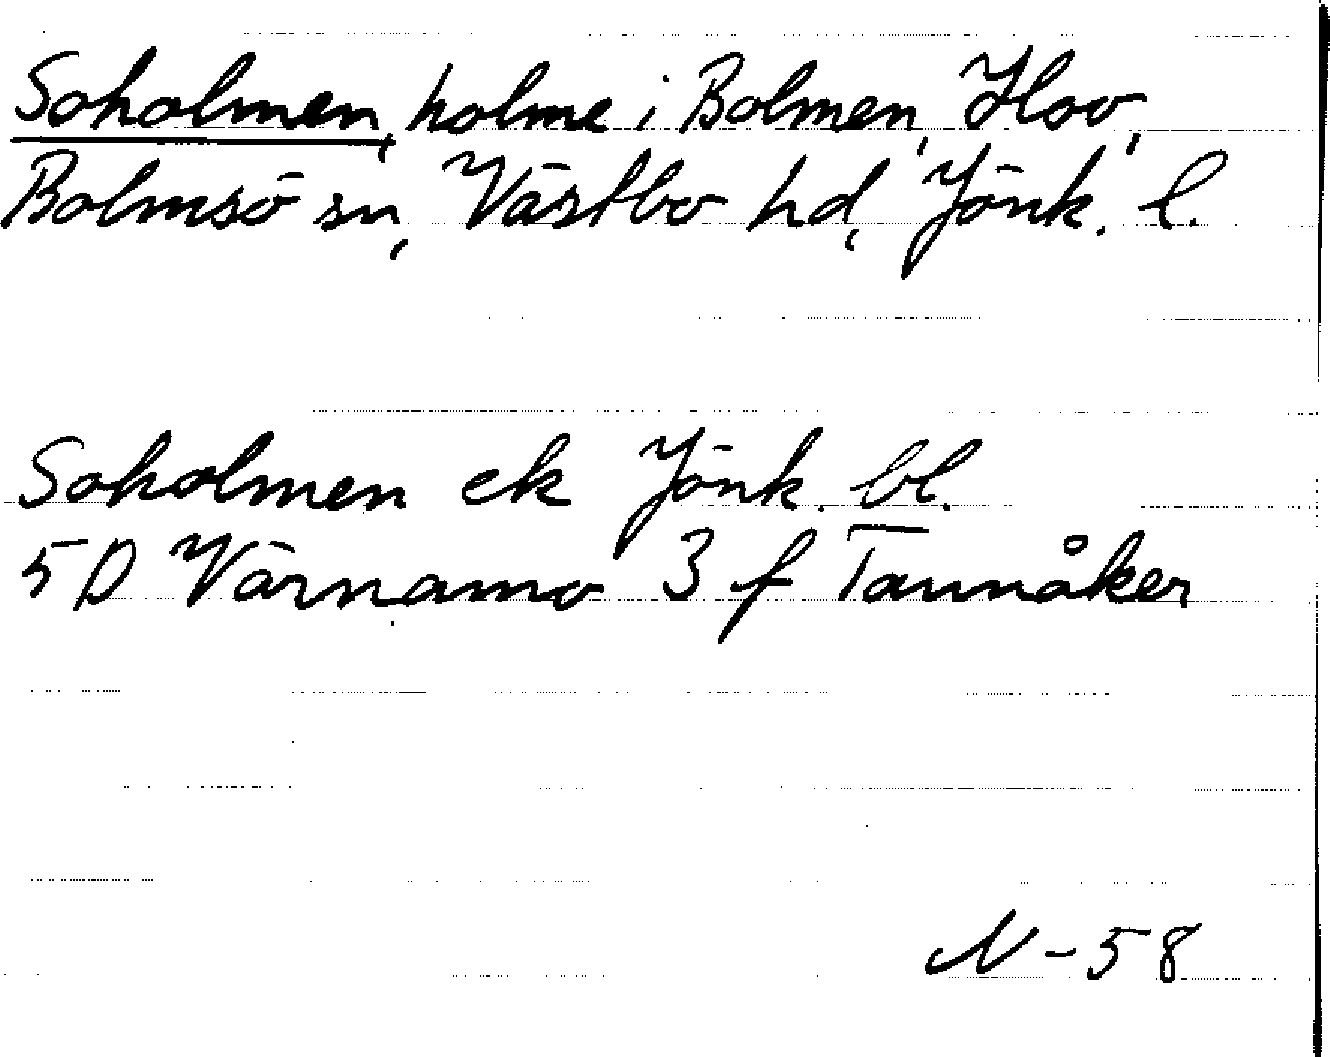 Soholmen, holme i Bolmen, Hov,
Bolmsö sn, Västbo hd, Jönk. l.
Soholmen ek Jönk. bl.
5D Värnamo 3 f Tannåker
N-58